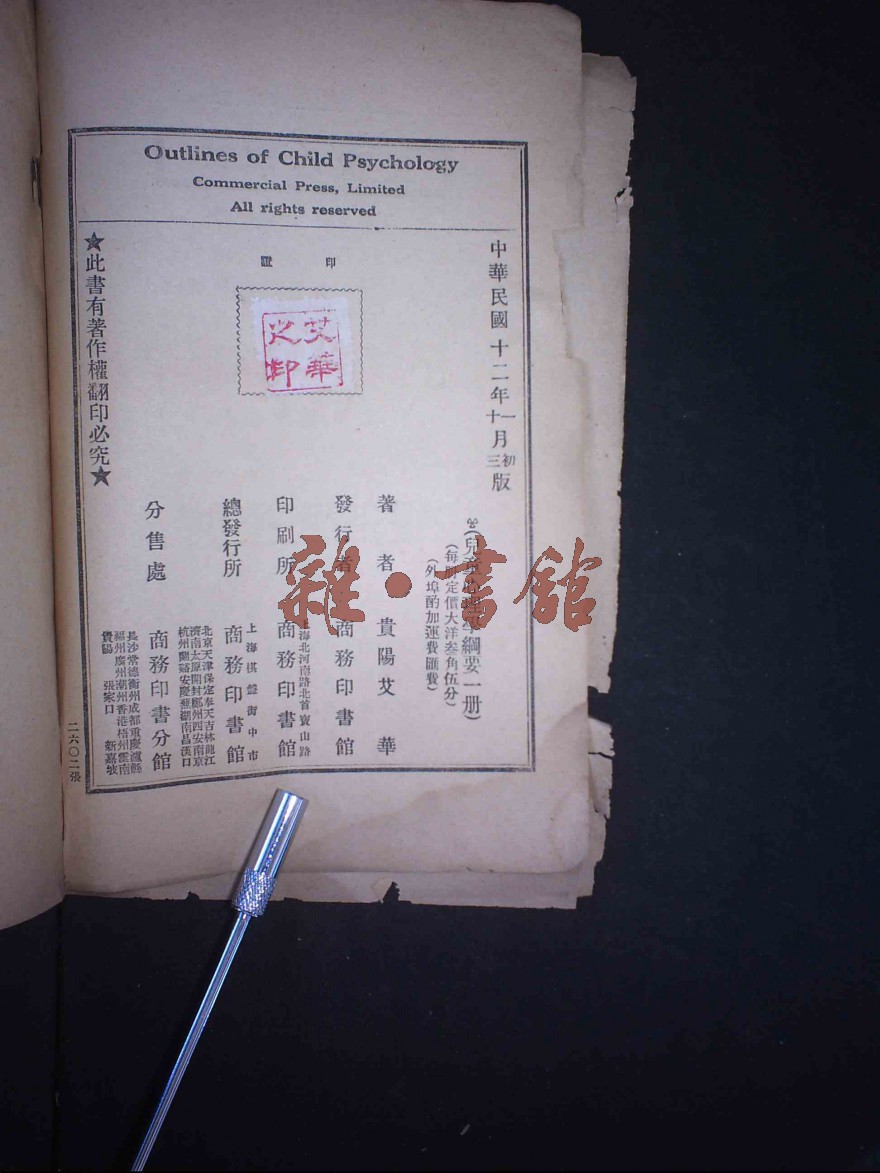 Outlines of Child Psychology
Commercial Press, Limited
All rights reserved
中華民國十二年十一月初三版
印證
艾華之印
(兒童心理學綱要一册)
(每册定價大洋叁角伍分)
(外埠酌加運費匯費)
著者 貴陽艾華
發行者 商務印書館
印刷所 上海北河南路北首寶山路 商務印書館
總發行所 上海棋盤街中市 商務印書館
分售處 商務印書分館
北京天津保定奉天吉林龍江
濟南太原開封鄭州西安南京
杭州蘭谿安慶蕪湖南昌漢口
長沙常德衡州成都重慶瀘縣
福州廣州潮州香港梧州雲南
貴陽 張家口 新嘉坡
★此書有著作權翻印必究★
二六〇二張
雜·書館